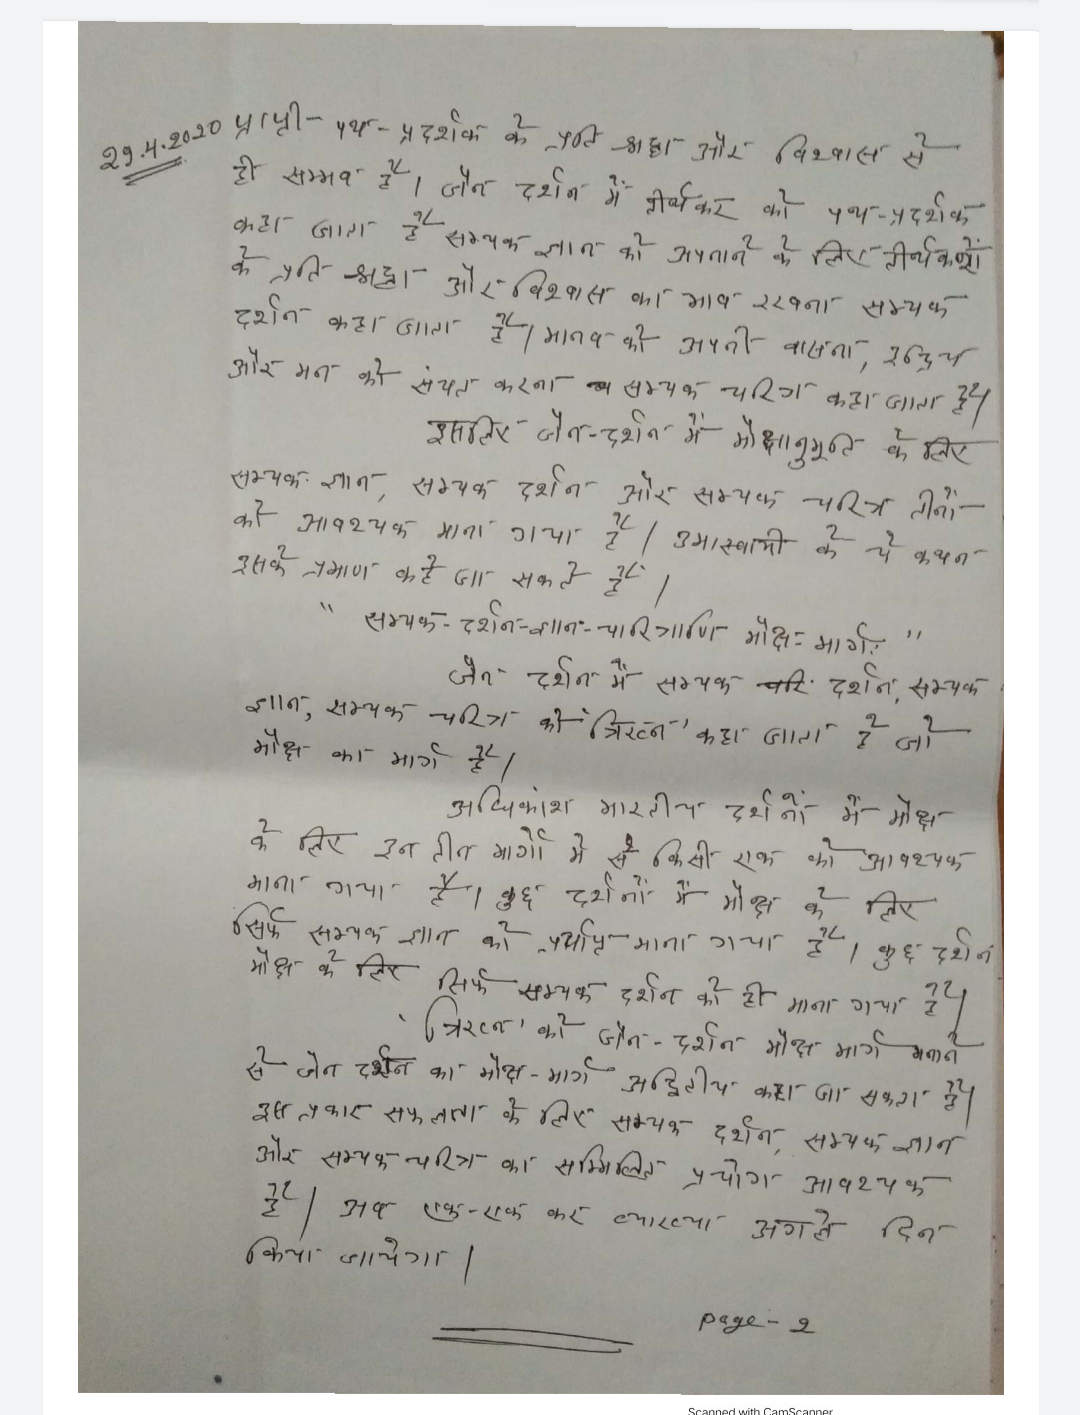 29.4.2020
प्राप्ती- पथ-प्रदर्शक के प्रति श्रद्धा और विश्वास से
ही सम्भव है। जैन दर्शन में तीर्थंकर को पथ-प्रदर्शक
कहा जाता है सम्यक ज्ञान को अपनाने के लिए तीर्थंकरों
के प्रति श्रद्धा और विश्वास का भाव रखना सम्यक
दर्शन कहा जाता है। मानव को अपनी वासना, इन्द्रिय
और मन को संयत करना सम्यक चरित्र कहा जाता है।
इसलिए जैन-दर्शन में मोक्षानुभूति के लिए
सम्यक ज्ञान, सम्यक दर्शन और सम्यक चरित्र तीनों
को आवश्यक माना गया है। उमास्वामी के ये कथन
इसके प्रमाण कहे जा सकते हैं।
" सम्यक-दर्शन-ज्ञान-चारित्राणि मोक्ष-मार्ग: "
जैन दर्शन में सम्यक दर्शन, सम्यक
ज्ञान, सम्यक चरित्र को 'त्रिरत्न' कहा जाता है जो
मोक्ष का मार्ग है।
अधिकांश भारतीय दर्शनों में मोक्ष
के लिए इन तीन मार्गों में से किसी एक को आवश्यक
माना गया है। कुछ दर्शनों में मोक्ष के लिए
सिर्फ सम्यक ज्ञान को पर्याप्त माना गया है। कुछ दर्शन
मोक्ष के लिए सिर्फ सम्यक दर्शन को ही माना गया है।
'त्रिरत्न' को जैन-दर्शन मोक्ष मार्ग मनाने
से जैन दर्शन का मोक्ष-मार्ग अद्वितीय कहा जा सकता है।
इस प्रकार सफलता के लिए सम्यक दर्शन, सम्यक ज्ञान
और सम्यक चरित्र का सम्मिलित प्रयोग आवश्यक
है। अब एक-एक कर व्याख्या अगले दिन
किया जायेगा।
page-2
Scanned with CamScanner